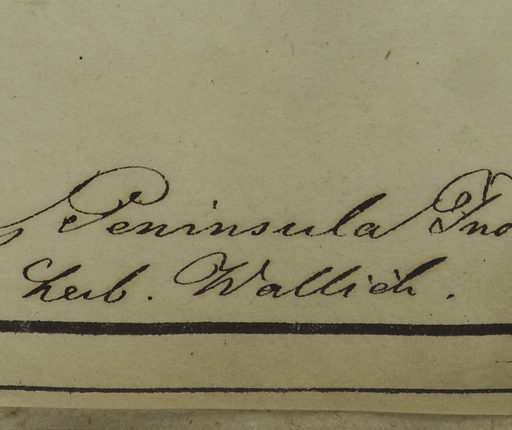 Peninsula Ind
herb. Wallich.